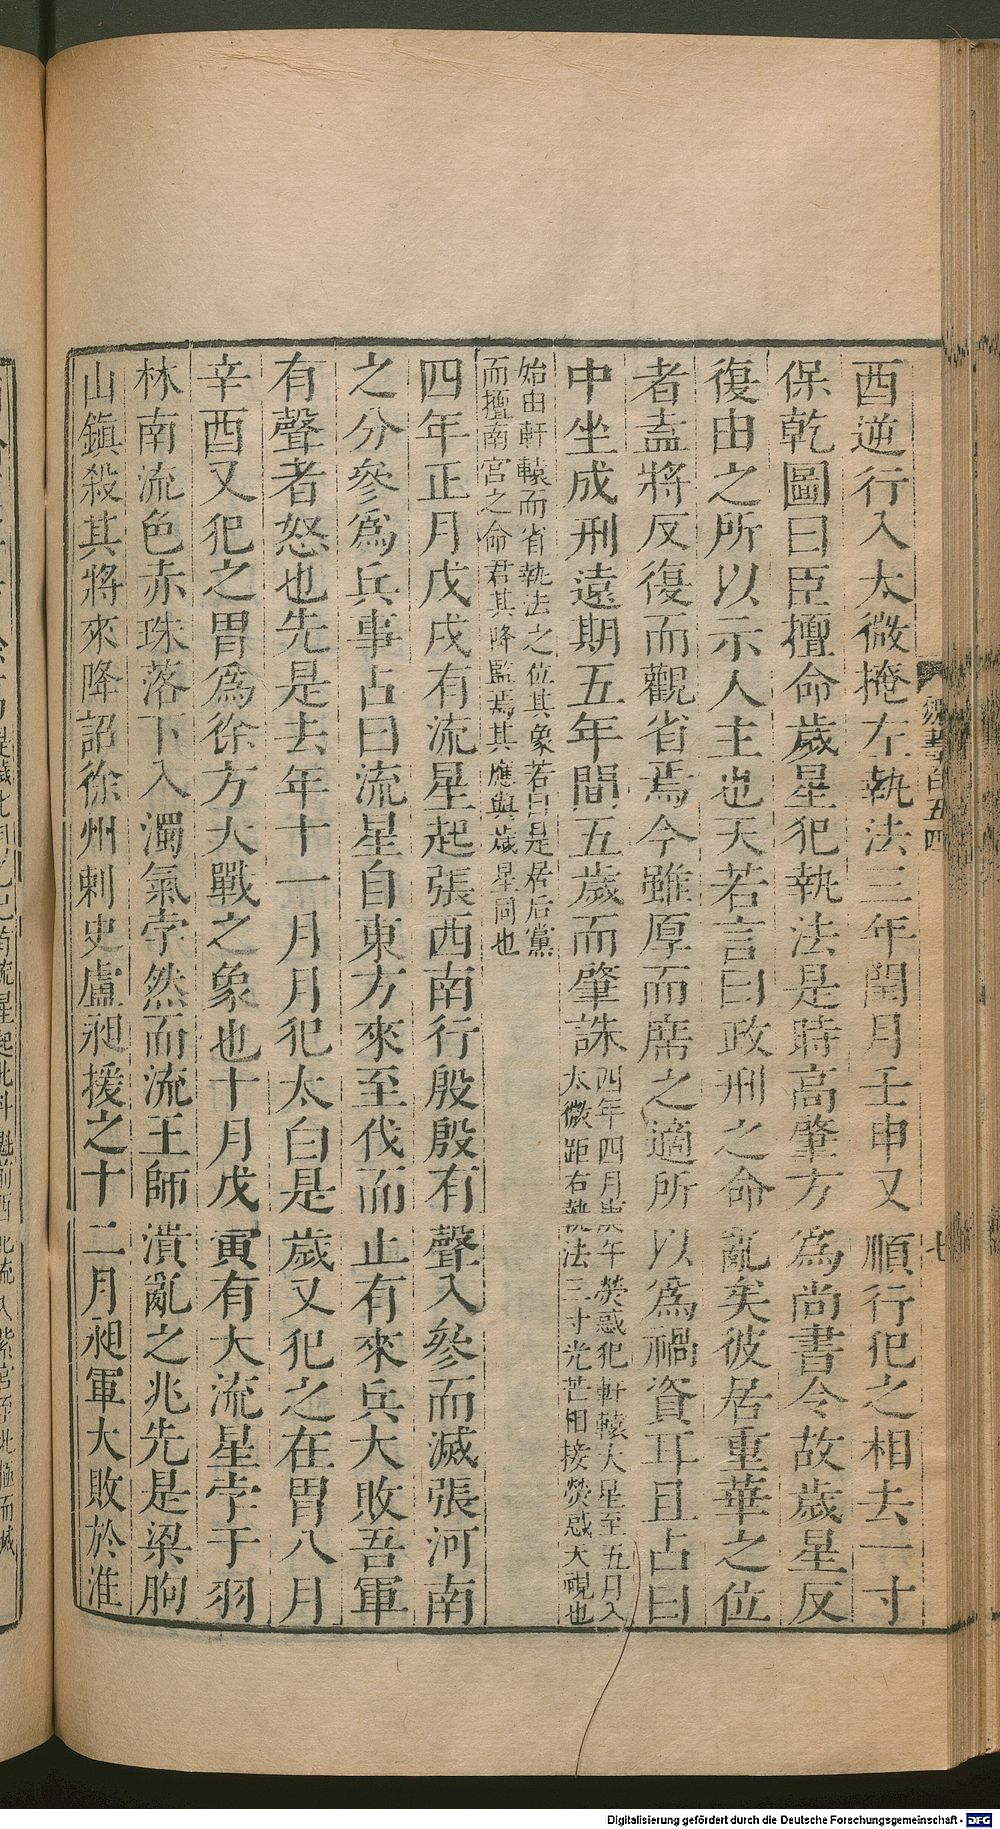 西逆行入太微掩左執法三年閏月壬申又順行犯之相去一寸
保乾圖曰臣擅命歲星犯執法是時高肇方爲尚書令故歲星反
復由之所以示人主也天若言曰政刑之命亂矣彼居重華之位
者盍將反復而觀省焉今雖厚而席之適所以爲禍資耳且占曰
中坐成刑遠期五年間五歲而肇誅四年四月庚午熒惑犯軒轅大星至五月入
太微距右執法三寸光芒相接熒惑天視也
始由軒轅而省執法之位其象若曰是居后黨
而擅南宮之命君其降監焉其應與歲星同也
四年正月戊戌有流星起張西南行殷殷有聲入參而滅張河南
之分參爲兵事占曰流星自東方來至伐而止有來兵大敗吾軍
有聲者怒也先是去年十一月月犯太白是歲又犯之在胃八月
辛酉又犯之胃爲徐方大戰之象也十月戊寅有大流星孛于羽
林南流色赤珠落下入濁氣孛然而流王師潰亂之兆先是梁朐
山鎮殺其將來降詔徐州刺史盧昶援之十二月昶軍大敗於淮
魏書百五四
七
Digitalisierung gefördert durch die Deutsche Forschungsgemeinschaft - DFG